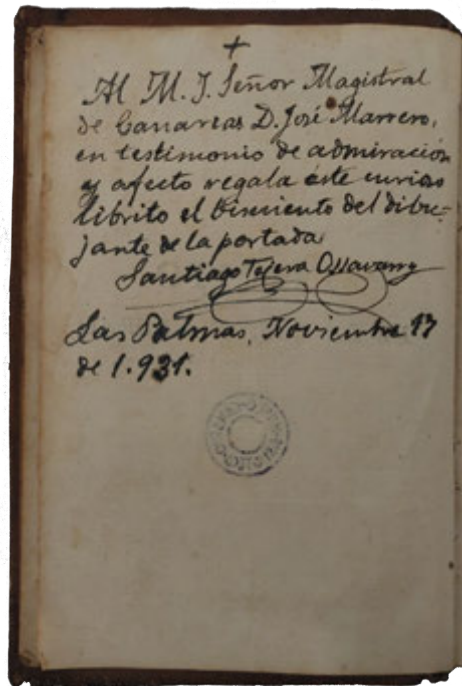 +
Al M. I. Señor Magistral
de Canarias D. José Marrero,
en testimonio de admiración
y afecto regala este curioso
librito el bisnieto del dibu-
jante de la portada
Santiago Tejera Ossavarry
Las Palmas, Noviembre 17
de 1.931.